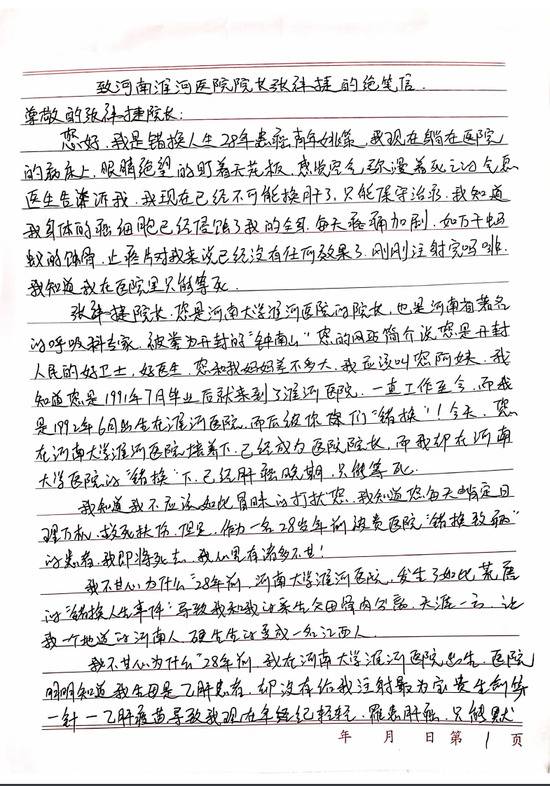 致河南淮河医院院长张祎捷的绝笔信.
尊敬的张祎捷院长:
您好,我是错换人生28年患癌青年姚策,我现在躺在医院
的病床上,眼睛绝望的盯着天花板,感觉空气弥漫着死亡的气息
医生告诉我,我现在已经不可能换肝了,只能保守治疗,我知道
我身体的癌细胞已经侵蚀了我的全身,每天疼痛加剧,如万千蚂
蚁的体骨,止疼片对我来说已经没有任何效果了,刚刚注射完吗啡.
我知道我在医院里只能等死.
张祎捷院长,您是河南大学淮河医院的院长,也是河南省著名
的呼吸科专家,被誉为开封的"钟南山"您的网站简介说您是开封
人民的好卫士,好医生,您和我妈妈差不多大,我应该叫您阿姨,我
知道您是1991年7月毕业后就来到了淮河医院,一直工作至今,而我
是1992年6月出生在淮河医院,而后被你院们"错换"!今天,您
在河南大学淮河医院培养下,已经成为医院院长,而我却在河南
大学医院的"错换"下,已经肝癌晚期,只能等死.
我知道我不应该如此冒昧的打扰您,我知道您每天肯定日
理万机,救死扶伤,但是,作为一名28岁年前被贵医院"错换致癌"
的患者,我即将死去,我心里有诸多不甘!
我不甘心为什么"28年前,河南大学淮河医院,发生了如此荒唐
的"错换人生事件"导致我和我的亲生父母骨肉分离,天涯一方,让
我一个地道的河南人,硬生生的变成一名江西人.
我不甘心为什么"28年前,我在河南大学淮河医院出生,医院
明明知道我生母是乙肝患者,却没有给我注射最为宝贵生命第
一针一乙肝疫苗导致我现在年经纪轻轻,罹患肝癌,只能默
年 月 日第 1 页